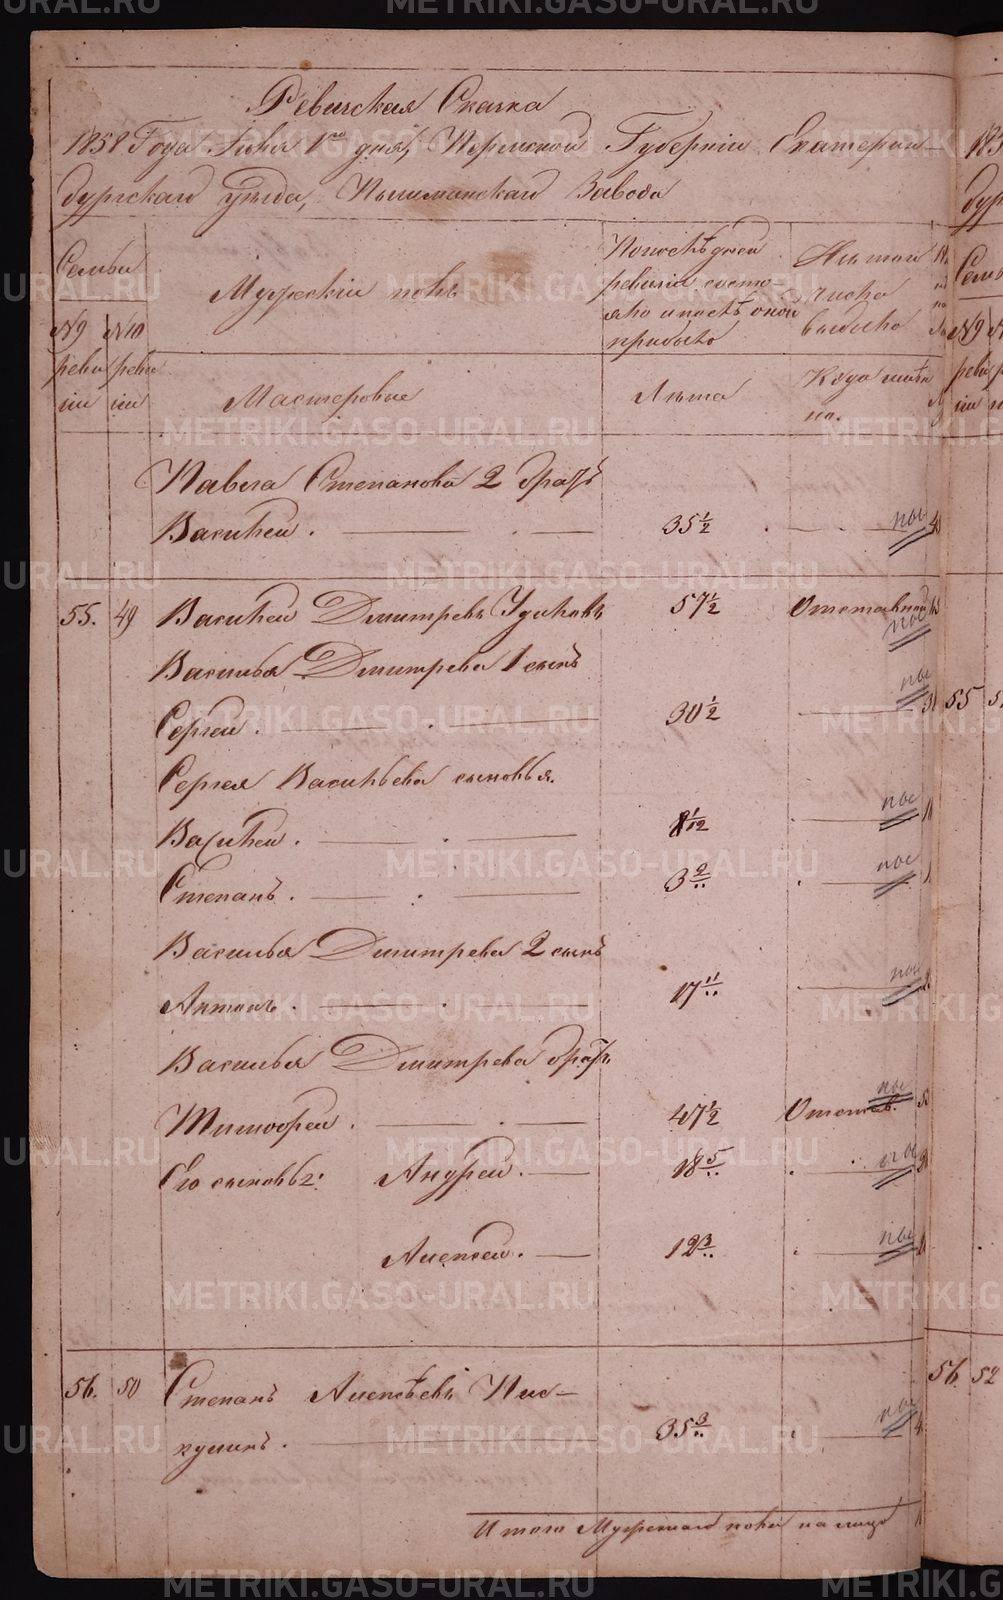 Ревизская Сказка
1858 Года Июня 1го дня, Пермской Губернии Екатерин-
бургскаго уезда, Пышминскаго Завода
Семьи
№9 ревизии
№10 ревизии
Мужескiй полъ
После дней
ревизiи состо-
яло и после оной
прибыло
Изъ того
числа
выбыло
Мастеровые
Лета
Когда имен-
но.
Павла Степанова 2 братъ
Василей . 35½ пос
55. 49 Василей Дмитревъ Удиловъ 57½ Отставной
пос
Василья Дмитрева 1 сынъ
пос
Сергей . 30½
55
Сергея Васильева сыновья.
Василей . 8 1/12 пос
Степанъ . 3 9/.. пос
Василья Дмитрева 2 сынъ
Антонъ . 17 11/.. пос
Василья Дмитрева братъ
Тимофей . 47½ Отстав. пос
Его сыновья: Андрей . 18 5/.. пос
Алексей . 12 3/.. пос
56. 50 Степанъ Алексеевъ Пис-
кунинъ . 35 3/.. пос
56. 52
Итого Мужескаго пола на лицо
METRIKI.GASO-URAL.RU